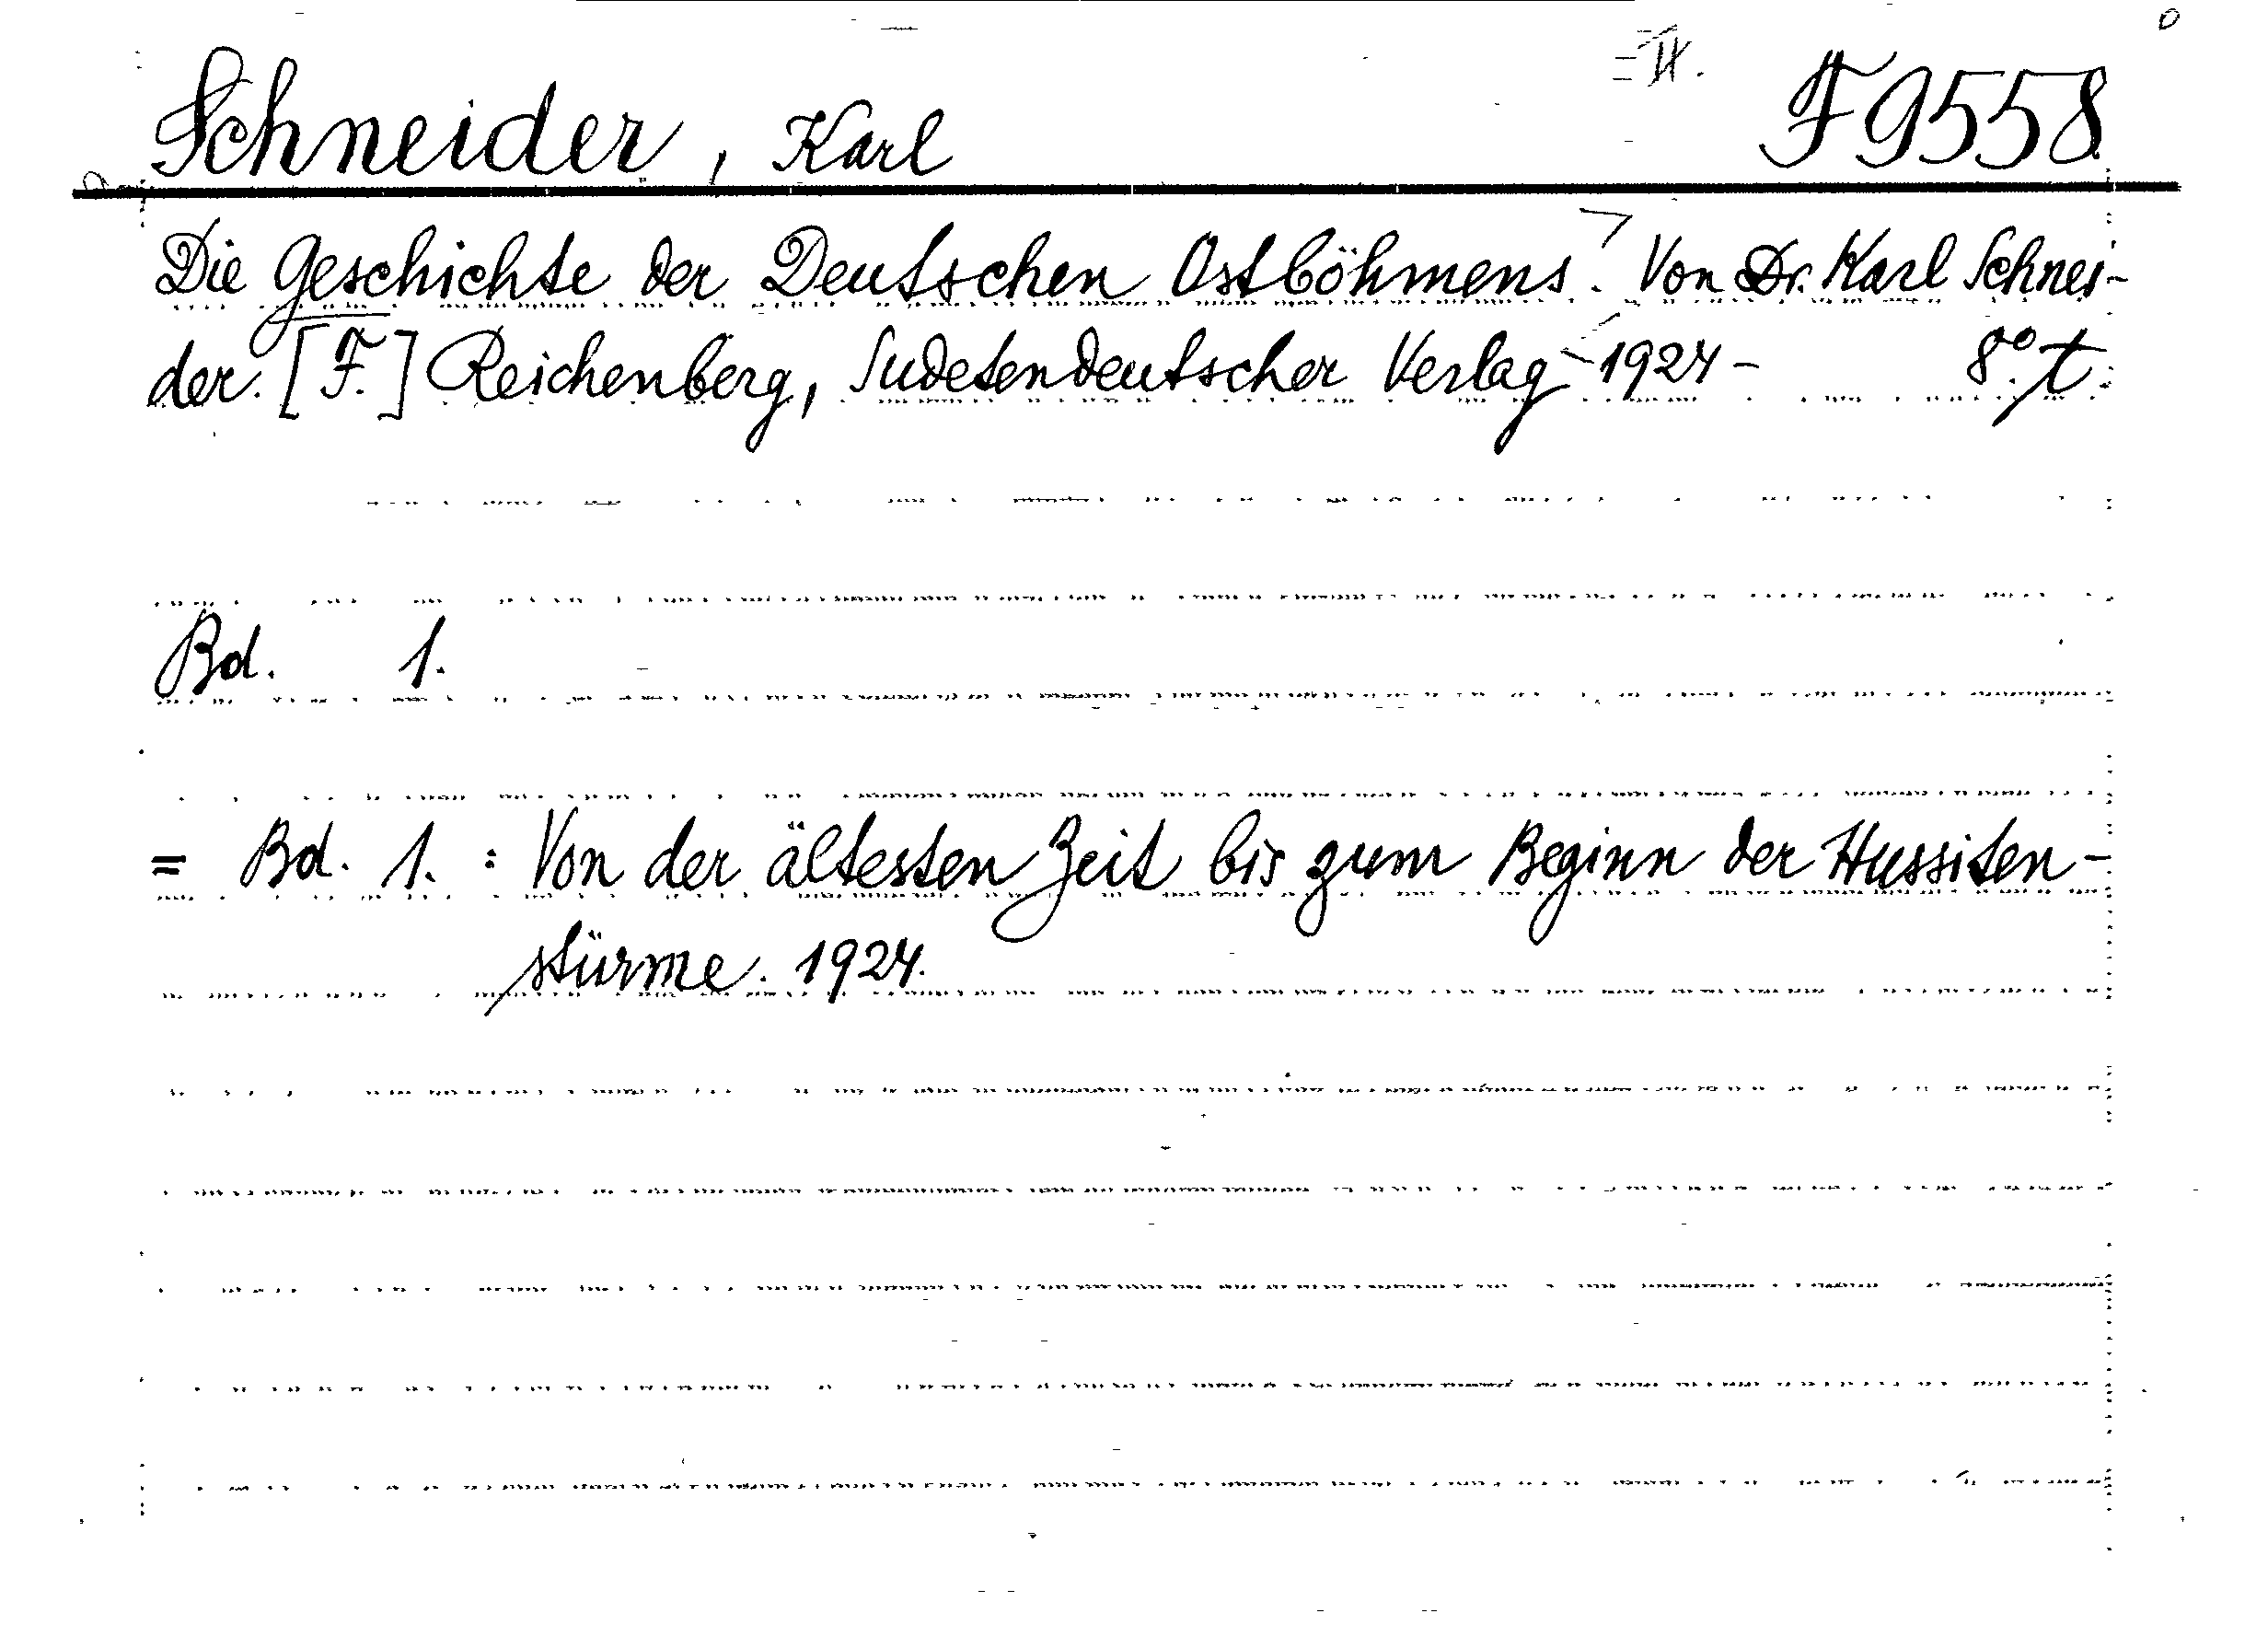 Schneider, Karl F 9558
Die Geschichte der Deutschen Ostböhmens. Von Dr. Karl Schnei-
der. [F.] Reichenberg, Sudetendeutscher Verlag 1924 - 8°. t.
Bd. 1.
= Bd. 1. : Von der ältesten Zeit bis zum Beginn der Hussiten-
stürme. 1924.